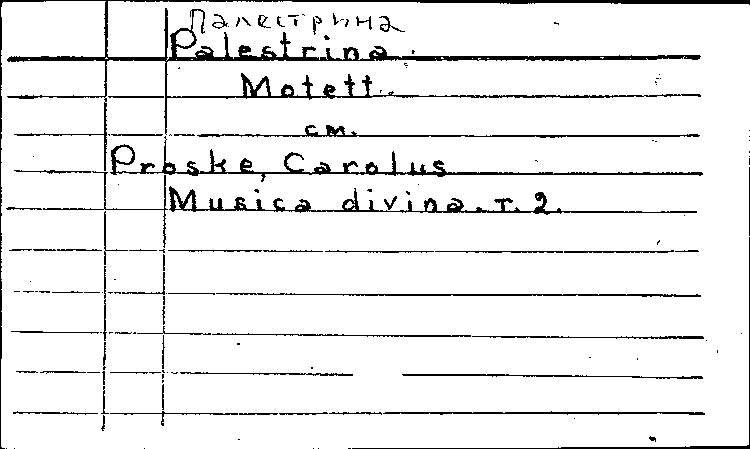 Палестрина
Palestrina.
Motett.
см.
Proske, Carolus
Musica divina. т. 2.